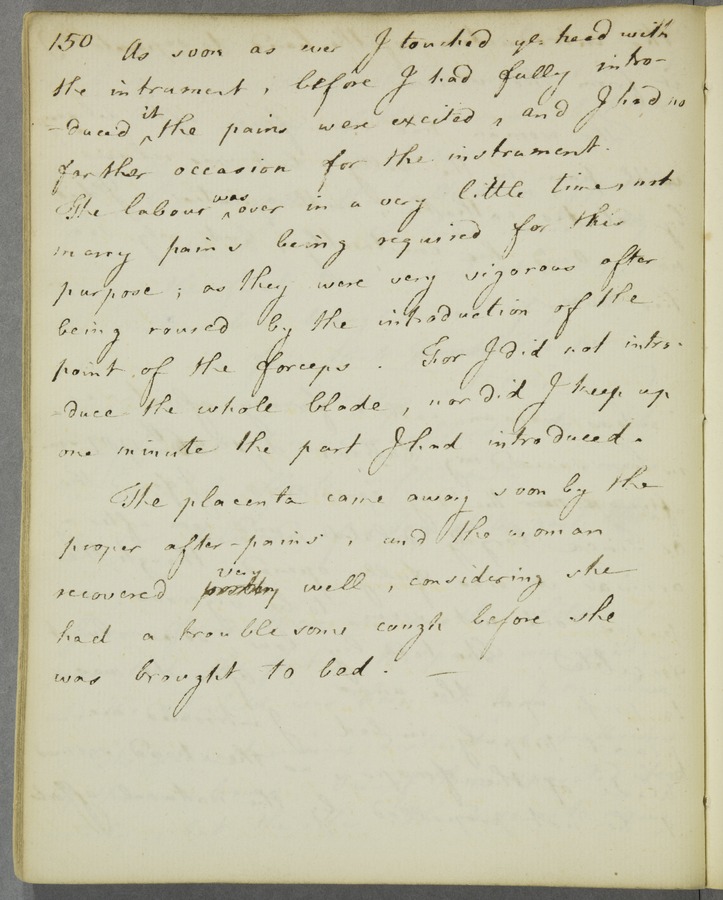 150 As soon as ever I touched ye. head with
the intrument, before I had fully intro-
-duced it the pains were excited, and I had no
farther occasion for the instrument.
The labour was over in a very little time, not
many pains being required for this
purpose; as they were very vigorous after
being roused by the introduction of the
point of the forceps. For I did not intro-
-duce the whole blade, nor did I keep up
one minute the part I had introduced.
The placenta came away soon by the
proper after-pains, and the woman
recovered very well, considering she
had a troublesome cough before she
was brought to bed. —